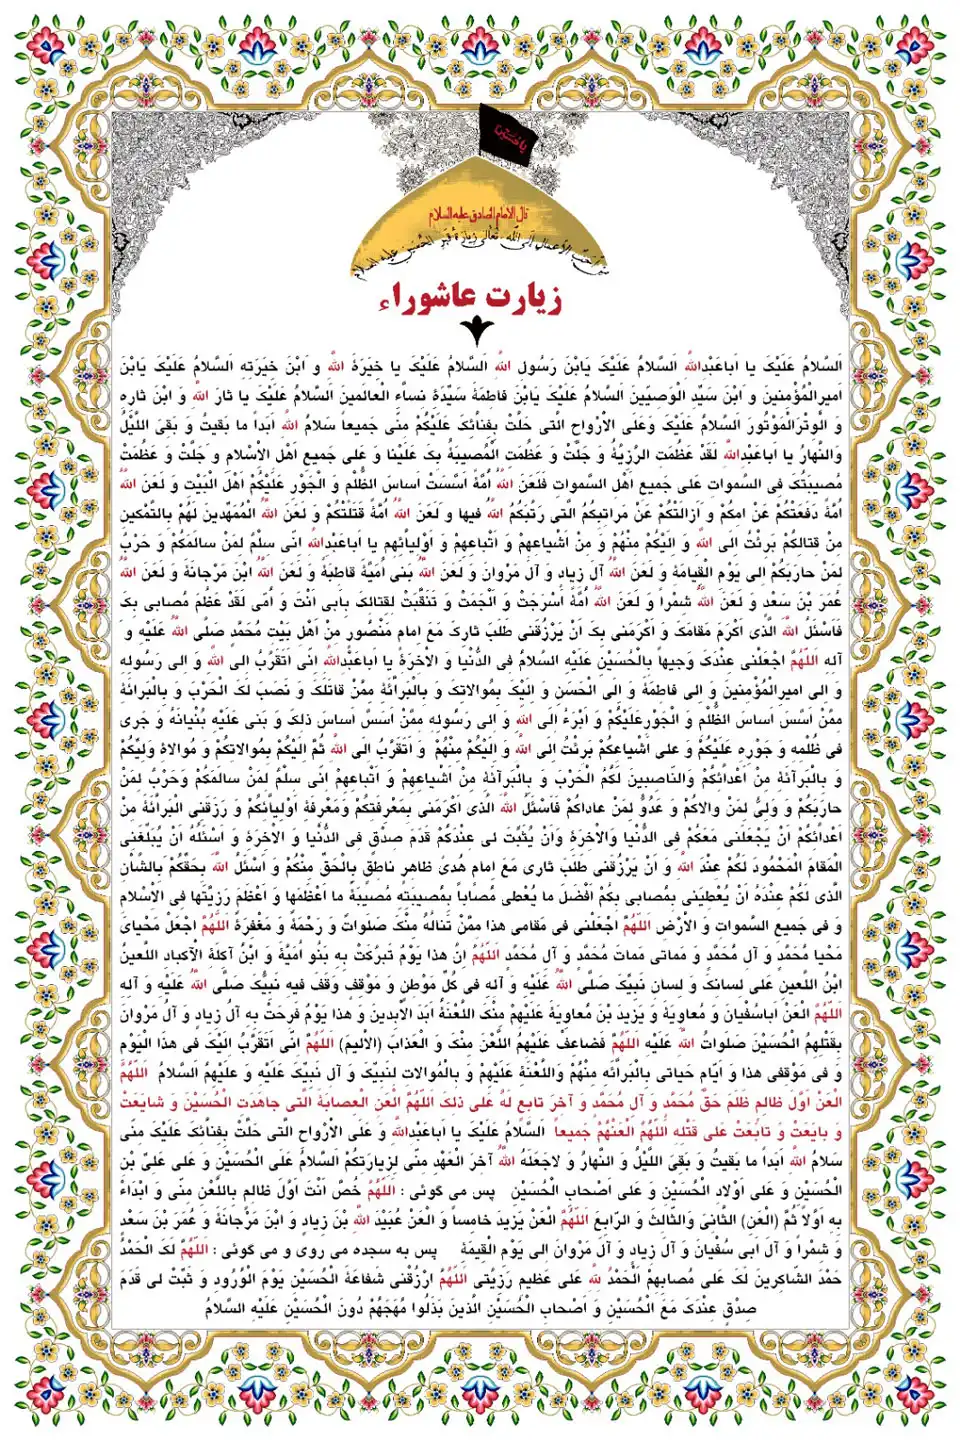 یا حسین
قال الامام الصادق علیه السلام
من احب الاعمال الی الله تعالی زیارة قبر الحسین علیه السلام
زیارت عاشوراء
اَلسَّلامُ عَلَیْکَ یا اَباعَبْدِاللَّهِ اَلسَّلامُ عَلَیْکَ یَابْنَ رَسُولِ اللَّهِ اَلسَّلامُ عَلَیْکَ یا خِیَرَةَ اللَّهِ و َابْنَ خِیَرَتِهِ اَلسَّلامُ عَلَیْکَ یَابْنَ
اَمیرِالْمُؤْمِنینَ و َابْنَ سَیِّدِ الْوَصِیّینَ اَلسَّلامُ عَلَیْکَ یَابْنَ فاطِمَةَ سَیِّدَةِ نِساءِ الْعالَمینَ اَلسَّلامُ عَلَیْکَ یا ثارَ اللَّهِ و َابْنَ ثارِهِ
و َالْوِتْرَالْمَوْتُورَ اَلسَّلامُ عَلَیْکَ وَعَلَی الْاَرْواحِ الَّتی حَلَّتْ بِفِنائِکَ عَلَیْکُمْ مِنّی جَمیعاً سَلامُ اللَّهِ اَبَداً ما بَقیتُ و َبَقِیَ اللَّیْلُ
وَالنَّهارُ یا اَباعَبْدِاللَّهِ لَقَدْ عَظُمَتِ الرَّزِیَّةُ و َجَلَّتْ و َعَظُمَتِ الْمُصیبَةُ بِکَ عَلَیْنا و َعَلی جَمیعِ اَهْلِ الْاِسْلامِ و َجَلَّتْ و َعَظُمَتْ
مُصیبَتُکَ فِی السَّمواتِ عَلی جَمیعِ اَهْلِ السَّمواتِ فَلَعَنَ اللَّهُ اُمَّةً اَسَّسَتْ اَساسَ الظُّلْمِ و َالْجَوْرِ عَلَیْکُمْ اَهْلَ الْبَیْتِ و َلَعَنَ اللَّهُ
اُمَّةً دَفَعَتْکُمْ عَنْ مَقامِکُمْ و َاَزالَتْکُمْ عَنْ مَراتِبِکُمُ الَّتی رَتَّبَکُمُ اللَّهُ فیها و َلَعَنَ اللَّهُ اُمَّةً قَتَلَتْکُمْ و َلَعَنَ اللَّهُ الْمُمَهِّدینَ لَهُمْ بِالتَّمْکینِ
مِنْ قِتالِکُمْ بَرِئْتُ اِلَی اللَّهِ و َاِلَیْکُمْ مِنْهُمْ و َمِنْ اَشْیاعِهِمْ و َاَتْباعِهِمْ و َاَوْلِیائِهِم یا اَباعَبْدِاللَّهِ اِنّی سِلْمٌ لِمَنْ سالَمَکُمْ و َحَرْبٌ
لِمَنْ حارَبَکُمْ اِلی یَوْمِ الْقِیامَةِ و َلَعَنَ اللَّهُ آلَ زِیادٍ و َآلَ مَرْوانَ و َلَعَنَ اللَّهُ بَنی اُمَیَّةَ قاطِبَةً و َلَعَنَ اللَّهُ ابْنَ مَرْجانَةَ و َلَعَنَ اللَّهُ
عُمَرَ بْنَ سَعْدٍ و َلَعَنَ اللَّهُ شِمْراً و َلَعَنَ اللَّهُ اُمَّةً اَسْرَجَتْ و َاَلْجَمَتْ و َتَنَقَّبَتْ لِقِتالِکَ بِاَبی اَنْتَ و َاُمّی لَقَدْ عَظُمَ مُصابی بِکَ
فَاَسْئَلُ اللَّهَ الَّذی اَکْرَمَ مَقامَکَ و َاَکْرَمَنی بِکَ اَنْ یَرْزُقَنی طَلَبَ ثارِکَ مَعَ اِمامٍ مَنْصُورٍ مِنْ اَهْلِ بَیْتِ مُحَمَّدٍ صَلَّی اللَّهُ عَلَیْهِ و َ
آلِهِ اَللّهُمَّ اجْعَلْنی عِنْدَکَ وَجیهاً بِالْحُسَیْنِ عَلَیْهِ السَّلامُ فِی الدُّنْیا و َالْاخِرَةِ یا اَباعَبْدِاللَّهِ اِنّی اَتَقَرَّبُ اِلی اللَّهِ و َاِلی رَسُولِهِ
و َاِلی امیرِالْمُؤْمِنینَ و َاِلی فاطِمَةَ و َاِلَی الْحَسَنِ و َاِلَیْکَ بِمُوالاتِکَ و َبِالْبَرائَةِ مِمَّنْ قاتَلَکَ و َنَصَبَ لَکَ الْحَرْبَ و َبِالْبَرائَةِ
مِمَّنْ اَسَّسَ اَساسَ الظُّلْمِ و َالْجَوْرِعَلَیْکُمْ و َاَبْرَءُ اِلَی اللَّهِ و َاِلی رَسُولِهِ مِمَّنْ اَسَّسَ اَساسَ ذلِکَ و َبَنی عَلَیْهِ بُنْیانَهُ و َجَری
فی ظُلْمِهِ و َجَوْرِهِ عَلَیْکُمْ و َعَلی اَشْیاعِکُمْ بَرِئْتُ اِلَی اللَّهِ و َاِلَیْکُمْ مِنْهُمْ و َاَتَقَرَّبُ اِلَی اللَّهِ ثُمَّ اِلَیْکُمْ بِمُوالاتِکُمْ و َمُوالاةِ وَلِیِّکُمْ
و َبِالْبَرآئَةِ مِنْ اَعْدائِکُمْ وَالنّاصِبینَ لَکُمُ الْحَرْبَ و َبِالْبَرآئَةِ مِنْ اَشْیاعِهِمْ و َاَتْباعِهِمْ اِنّی سِلْمٌ لِمَنْ سالَمَکُمْ وَحَرْبٌ لِمَنْ
حارَبَکُمْ و َوَلِیٌّ لِمَنْ والاکُمْ و َعَدُوٌّ لِمَنْ عاداکُمْ فَاَسْئَلُ اللَّهَ الَّذی اَکْرَمَنی بِمَعْرِفَتِکُمْ وَمَعْرِفَةِ اَوْلِیائِکُمْ و َرَزَقَنِی الْبَرائَةَ مِنْ
اَعْدائِکُمْ اَنْ یَجْعَلَنی مَعَکُمْ فِی الدُّنْیا وَالْاخِرَةِ وَاَنْ یُثَبِّتَ لی عِنْدَکُمْ قَدَمَ صِدْقٍ فِی الدُّنْیا و َالْاخِرَةِ و َاَسْئَلُهُ اَنْ یُبَلِّغَنِی
الْمَقامَ الْمَحْمُودَ لَکُمْ عِنْدَ اللَّهِ و َاَنْ یَرْزُقَنی طَلَبَ ثاری مَعَ اِمامٍ هُدیً ظاهِرٍ ناطِقٍ بِالْحَقِّ مِنْکُمْ و َاَسْئَلُ اللَّهَ بِحَقِّکُمْ بِالشَّاْنِ
الَّذی لَکُمْ عِنْدَهُ اَنْ یُعْطِیَنی بِمُصابی بِکُمْ اَفْضَلَ ما یُعْطی مُصاباً بِمُصیبَتِهِ مُصیبَةً ما اَعْظَمَها و َاَعْظَمَ رَزِیَّتَها فِی الْاِسْلامِ
و َفی جَمیعِ السَّمواتِ و َالْاَرْضِ اَللّهُمَّ اجْعَلْنی فی مَقامی هذا مِمَّنْ تَنالُهُ مِنْکَ صَلَواتٌ و َرَحْمَةٌ و َمَغْفِرَةٌ اَللّهُمَّ اجْعَلْ مَحْیایَ
مَحْیا مُحَمَّدٍ و َآلِ مُحَمَّدٍ و َمَماتی مَماتَ مُحَمَّدٍ و َآلِ مُحَمَّدٍ اَللّهُمَّ اِنَّ هذا یَوْمٌ تَبَرَّکَتْ بِهِ بَنُو اُمَیَّةَ و َابْنُ آکِلَةِ الْآکبادِ اللَّعینُ
ابْنُ اللَّعینِ عَلی لِسانِکَ و َلِسانِ نَبِیِّکَ صَلَّی اللَّهُ عَلَیْهِ و َآلِهِ فی کُلِّ مَوْطِنٍ و َمَوْقِفٍ وَقَفَ فیهِ نَبِیُّکَ صَلَّی اللَّهُ عَلَیْهِ و َآلِهِ
اَللّهُمَّ الْعَنْ اَباسُفْیانَ و َمُعاوِیَةَ و َیَزیدَ بْنَ مُعاوِیَةَ عَلَیْهِمْ مِنْکَ اللَّعْنَةُ اَبَدَ الْآبِدینَ و َهذا یَوْمٌ فَرِحَتْ بِهِ آلُ زِیادٍ و َآلُ مَرْوانَ
بِقَتْلِهِمُ الْحُسَیْنَ صَلَواتُ اللَّهِ عَلَیْهِ اَللّهُمَّ فَضاعِفْ عَلَیْهِمُ اللَّعْنَ مِنْکَ و َالْعَذابَ (الْاَلیمَ) اَللّهُمَّ اِنّی اَتَقَرَّبُ اِلَیْکَ فی هذَا الْیَوْمِ
و َفی مَوْقِفی هذا و َاَیّامِ حَیاتی بِالْبَرائَهِ مِنْهُمْ وَاللَّعْنَةِ عَلَیْهِمْ و َبِالْمُوالاتِ لِنَبِیِّکَ و َآلِ نَبِیِّکَ عَلَیْهِ و َعَلَیْهِمُ السَّلامُ اَللّهُمَّ
الْعَنْ اَوَّلَ ظالِمٍ ظَلَمَ حَقَّ مُحَمَّدٍ و َآلِ مُحَمَّدٍ و َآخِرَ تابِعٍ لَهُ عَلی ذلِکَ اَللّهُمَّ الْعَنِ الْعِصابَةَ الَّتی جاهَدَتِ الْحُسَیْنَ و َشایَعَتْ
و َبایَعَتْ و َتابَعَتْ عَلی قَتْلِهِ اَللّهُمَّ الْعَنْهُمْ جَمیعاً اَلسَّلامُ عَلَیْکَ یا اَباعَبْدِاللَّهِ و َعَلَی الْاَرْواحِ الَّتی حَلَّتْ بِفِنائِکَ عَلَیْکَ مِنّی
سَلامُ اللَّهِ اَبَداً ما بَقیتُ و َبَقِیَ اللَّیْلُ و َالنَّهارُ و َلاجَعَلَهُ اللَّهُ آخِرَ الْعَهْدِ مِنّی لِزِیارَتِکُمْ اَلسَّلامُ عَلَی الْحُسَیْنِ و َعَلی عَلِیِّ بْنِ
الْحُسَیْنِ و َعَلی اَوْلادِ الْحُسَیْنِ و َعَلی اَصْحابِ الْحُسَیْنِ پس می گوئی : اَللّهُمَّ خُصَّ اَنْتَ اَوَّلَ ظالِمٍ بِاللَّعْنِ مِنّی و َابْدَاْ
بِهِ اَوَّلاً ثُمَّ (الْعَنِ) الثّانِیَ وَالثّالِثَ و َالرّابِعَ اَللّهُمَّ الْعَنْ یَزیدَ خامِساً و َالْعَنْ عُبَیْدَ اللَّهِ بْنَ زِیادٍ و َابْنَ مَرْجانَةَ و َعُمَرَ بْنَ سَعْدٍ
و َشِمْراً و َآلَ اَبی سُفْیانَ و َآلَ زِیادٍ و َآلَ مَرْوانَ اِلی یَوْمِ الْقِیمَةِ پس به سجده می روی و می گوئی : اَللّهُمَّ لَکَ الْحَمْدُ
حَمْدَ الشّاکِرینَ لَکَ عَلی مُصابِهِمْ اَلْحَمْدُ لِلَّهِ عَلی عَظیمِ رَزِیَّتی اَللّهُمَّ ارْزُقْنی شَفاعَةَ الْحُسَیْنِ یَوْمَ الْوُرُودِ و َثَبِّتْ لی قَدَمَ
صِدْقٍ عِنْدَکَ مَعَ الْحُسَیْنِ و َاَصْحابِ الْحُسَیْنِ الَّذینَ بَذَلُوا مُهَجَهُمْ دُونَ الْحُسَیْنِ عَلَیْهِ السَّلامُ